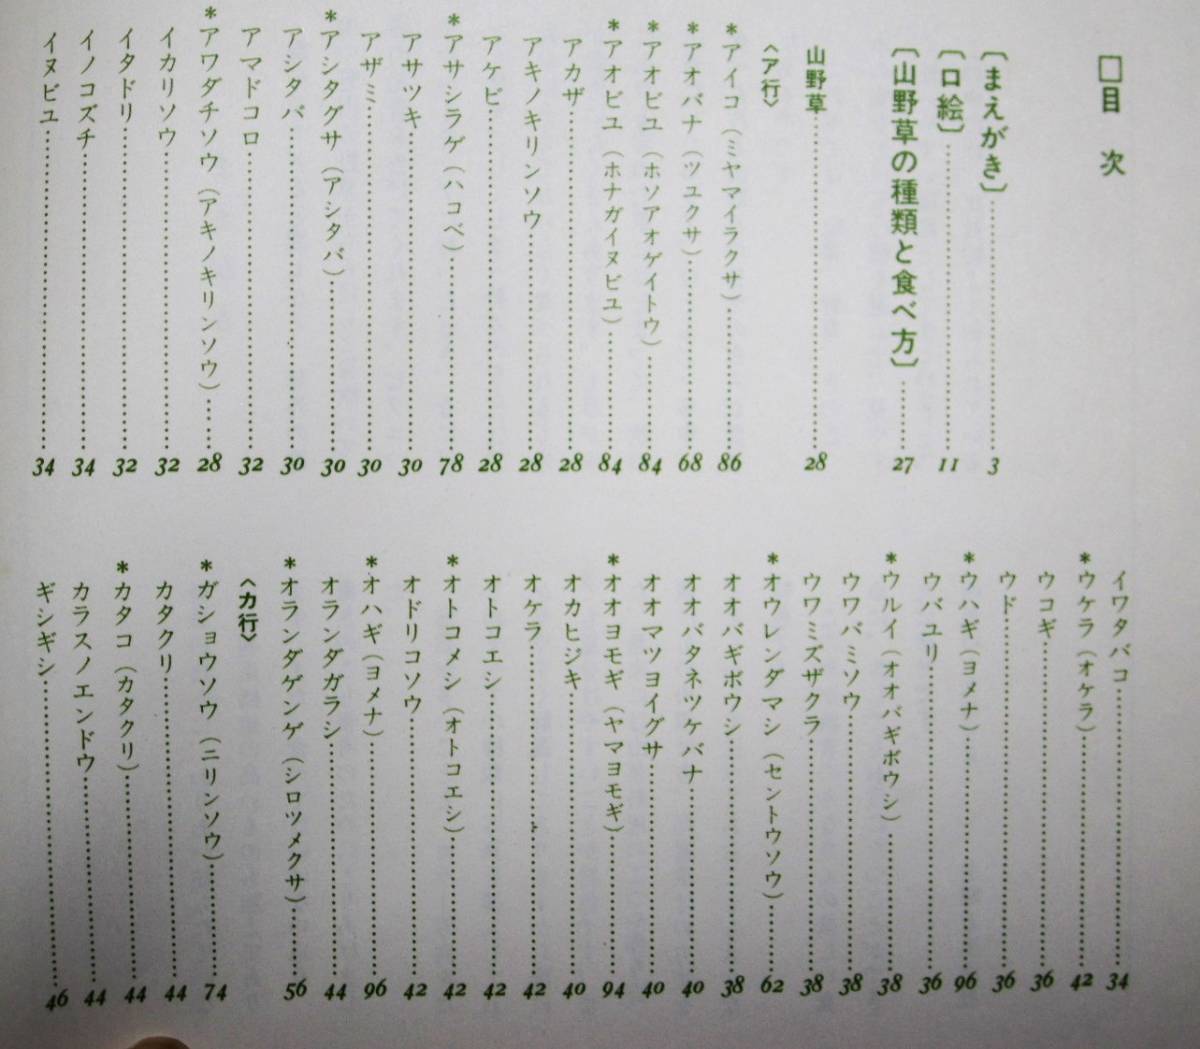 □目　次
〔まえがき〕…………3
〔口絵〕…………11
〔山野草の種類と食べ方〕…………27
山野草…………28
〈ア行〉
*アイコ（ミヤマイラクサ）…………86
*アオバナ（ツユクサ）…………68
*アオビユ（ホソアオゲイトウ）…………84
*アオビユ（ホナガイヌビユ）…………84
アカザ…………28
アキノキリンソウ…………28
アケビ…………28
*アサシラゲ（ハコベ）…………78
アサツキ…………30
アザミ…………30
*アシタグサ（アシタバ）…………30
アシタバ…………30
アマドコロ…………32
*アワダチソウ（アキノキリンソウ）…………28
イカリソウ…………32
イタドリ…………32
イノコズチ…………34
イヌビユ…………34
イワタバコ…………34
*ウケラ（オケラ）…………42
ウコギ…………36
ウド…………36
*ウハギ（ヨメナ）…………96
ウバユリ…………36
*ウルイ（オオバギボウシ）…………38
ウワバミソウ…………38
ウワミズザクラ…………38
*オウレンダマシ（セントウソウ）…………62
オオバギボウシ…………38
オオバタネツケバナ…………40
オオマツヨイグサ…………40
*オオヨモギ（ヤマヨモギ）…………94
オカヒジキ…………40
オケラ…………42
オトコエシ…………42
*オトコメシ（オトコエシ）…………42
オドリコソウ…………42
*オハギ（ヨメナ）…………96
オランダガラシ…………44
*オランダゲンゲ（シロツメクサ）…………56
〈カ行〉
*ガショウソウ（ニリンソウ）…………74
カタクリ…………44
*カタコ（カタクリ）…………44
カラスノエンドウ…………44
ギシギシ…………46